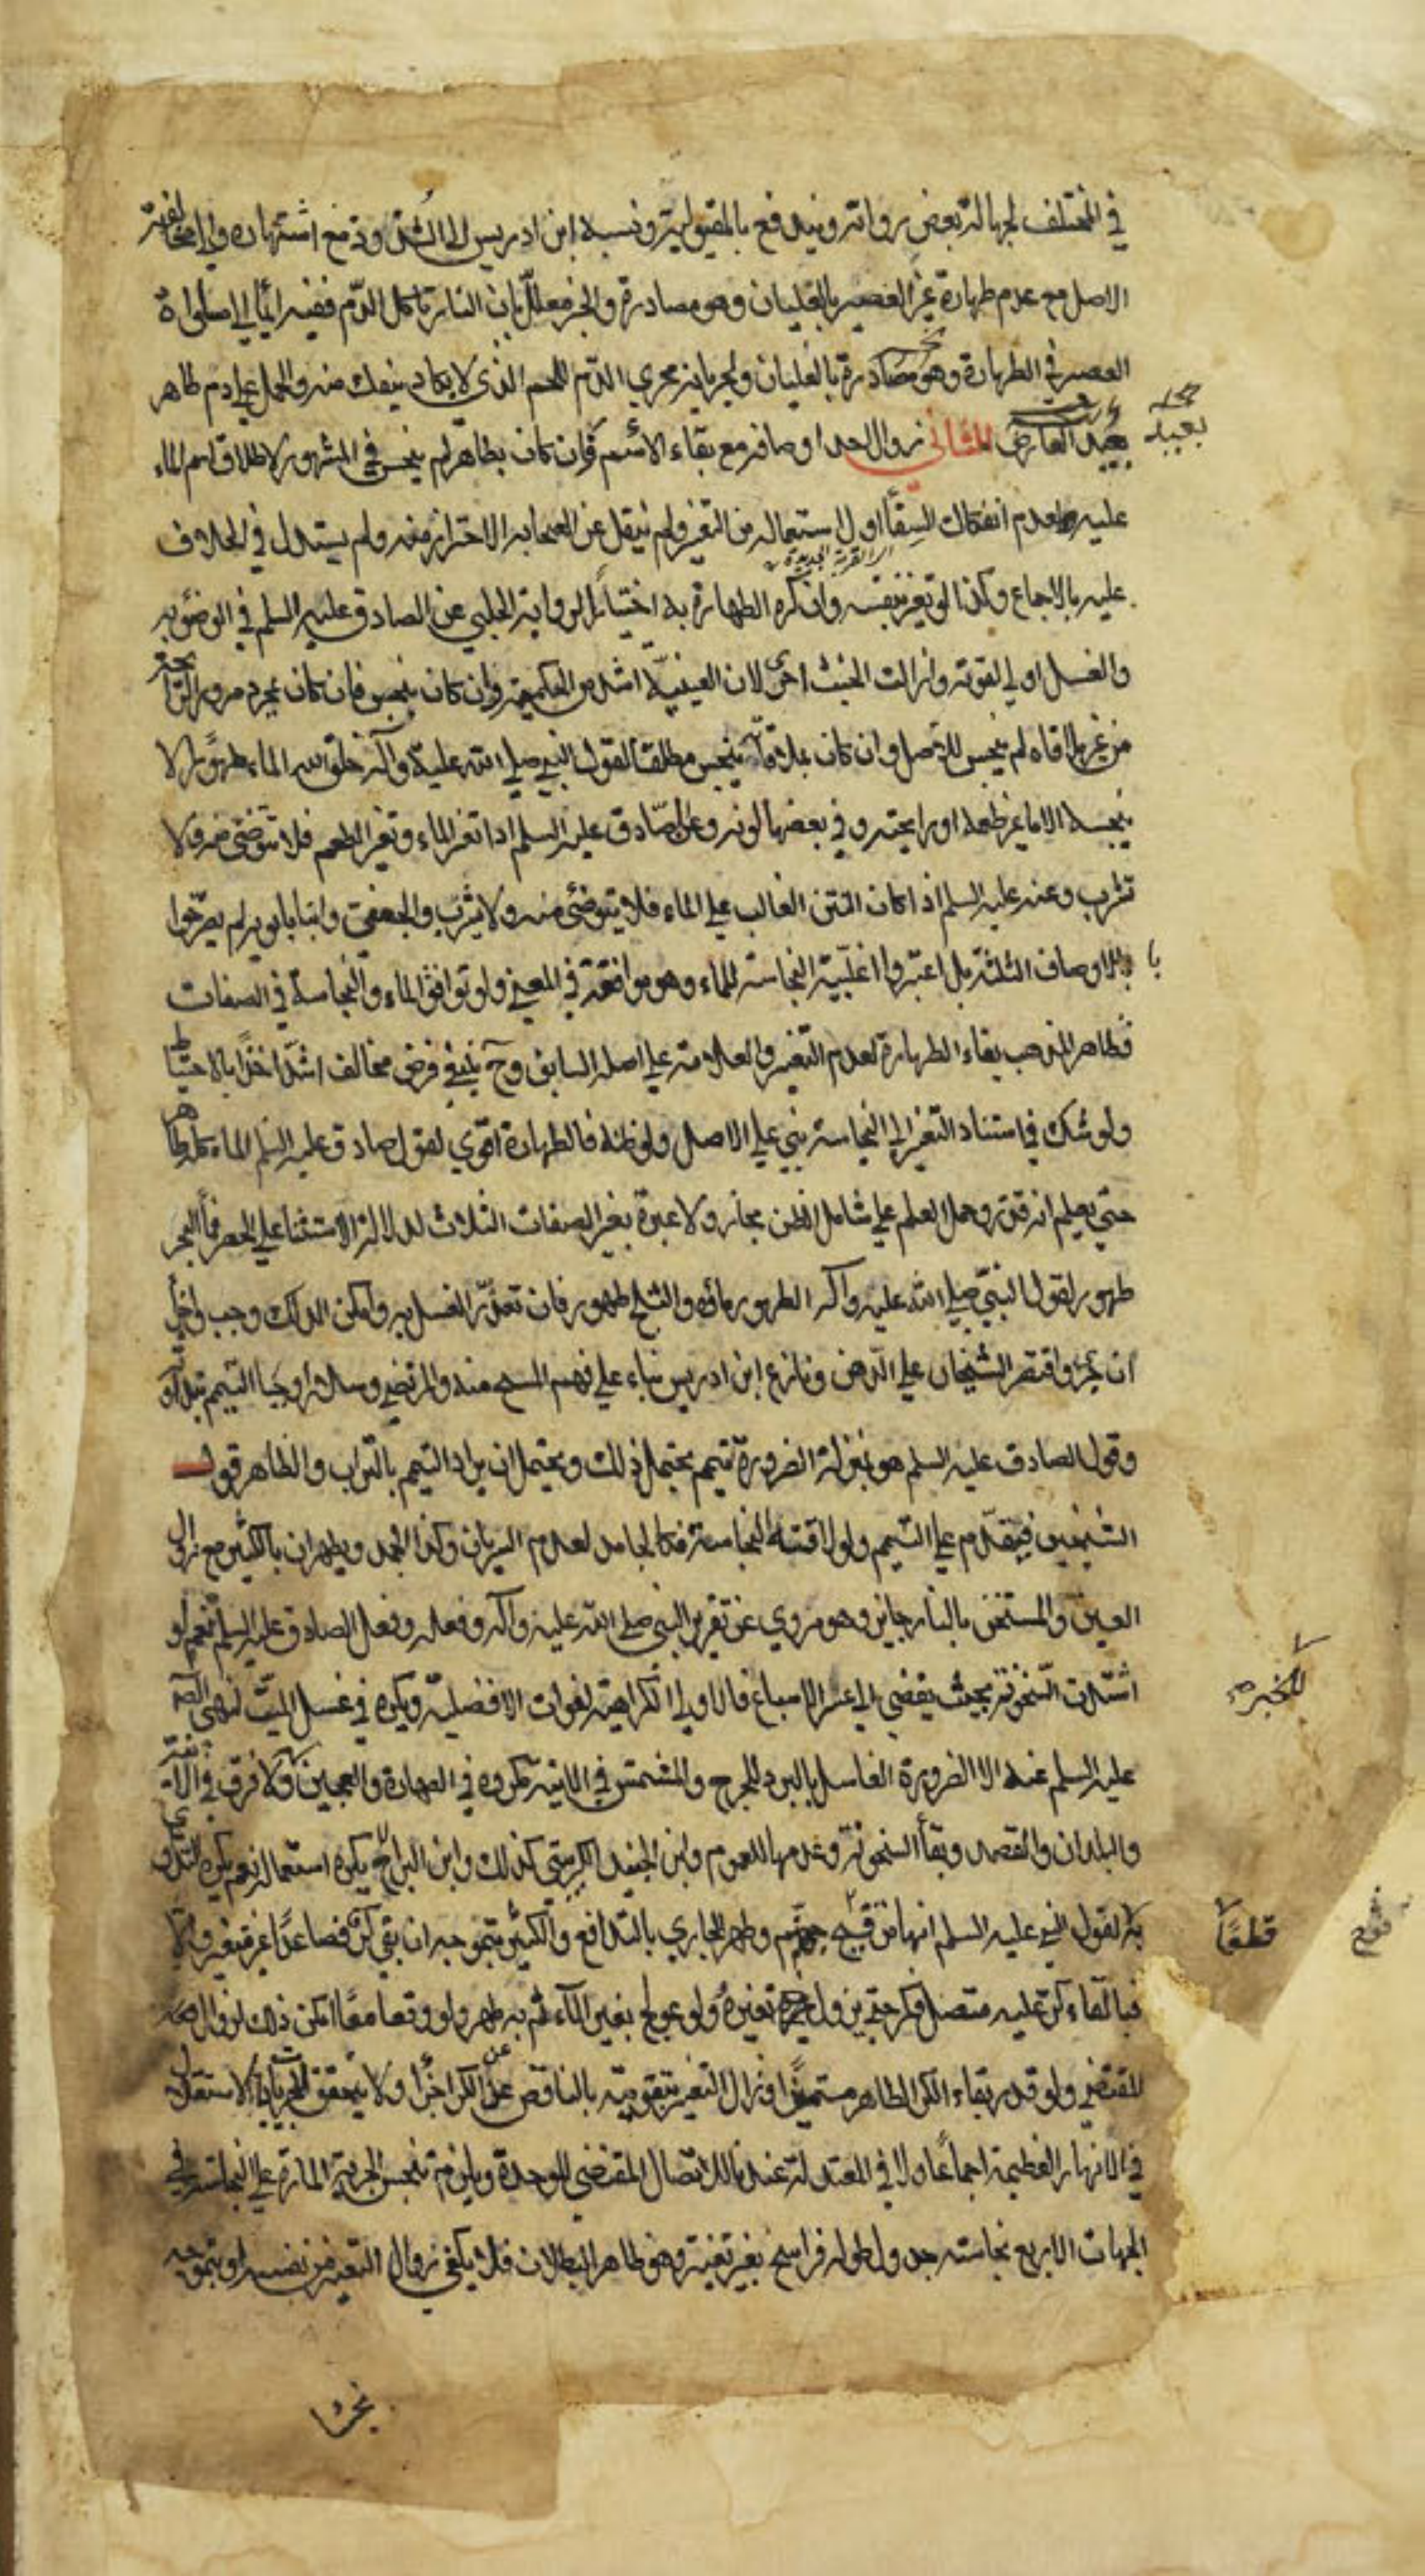 في المختلف لجهالة بعض رواته ويندفع بالمقبولية ونسبه ابن ادريس الى الشذوذ مع اشتهاره والى مخالفة
الاصل مع عدم طهارة غير العصير بالغليان وهو مصادرة والخبر معلل بان النار تاكل الدم ففيه ايماء الى مساواة
العصير في الطهارة وهو مصادرة بالغليان ولجريانه مجرى الدم اللحم الذي لا يكاد ينفك منه والحمل على دم طاهر
بعيد
بعيد الثاني زوال احد اوصافه مع بقاء الاسم فان كان بطاهر لم ينجس في المشهور لاطلاق اسم الماء
عليه ولعدم انفكاك السقاء اول استعماله من التغير ولم ينقل عن الصحابة الاحتراز منه ولم يستدل في الخلاف
اي القربة الجديدة
عليه بالاجماع وكذا لو تغير بنفسه وان كره الطهارة به اختيارا لرواية الحلبي عن الصادق عليه السلم في الوضوء به
والغسل اولى لقوته وازالت الخبث احرى لان العينية اشد من الحكمية وان كان بنجس فان كان بمجرد مرور الرائحة
من غير ملاقاه لم ينجس للاصل وان كان بملاقاته ينجس مطلقا لقول النبي صلى الله عليه وآله خلق الله الماء طهورا لا
ينجسه الا ما غير طعمه او رايحته وفي بعضها لونه وعن الصادق عليه السلم اذا تغير الماء وتغير الطعم فلا تتوضئ منه ولا
تشرب وعنه عليه السلم اذا كان النتن الغالب على الماء فلا يتوضئ منه ولا يشرب والجعفي وابنا بابويه لم يصرحوا
بالاوصاف الثلثة بل اعتبروا اغلبية النجاسة للماء وهو موافقة في المعنى ولو توافق الماء والنجاسة في الصفات
فظاهر المذهب بقاء الطهارة لعدم التغير والعلامة على اصله السابق وح ينبغي فرض مخالف اشد اخذا بالاحتياط
ولو شك في استناد التغير الى النجاسة بنى على الاصل ولو ظنه فالطهارة اقوى لقول صادق عليه السلم الماء كله طاهر
حتى يعلم انه قذر وحمل العلم على شامل الظن مجاز ولا عبرة بغير الصفات الثلاث لدلالة الاستثناء على الحصر فماء البحر
طهور لقول النبي صلى الله عليه وآله الطهور ماؤه والثلج طهور فان تعذر الغسل به وامكن الدلك وجب واجزأ
ان جرى واقتصر الشيخان على الدهن ونازع ابن ادريس بناء على فهم المسح منه والمرتضى وسلار اوجبا التيمم بنداوته
وقول الصادق عليه السلم هو بمنزلة الضرورة تيمم يحتمل ذلك ويحتمل ان يراد التيمم بالتراب والظاهر قول
الشيخين فيتقدم على التيمم ولو لاقته النجاسة فكالجامد لعدم السريان وكذا الجمد ويطهران بالكثير مع زوال
العين والمستخن بالنار جايز وهو مروي عن تقرير النبي صلى الله عليه وآله وفعله وفعل الصادق عليه السلم نعم لو
اشتدت السخونة بحيث يفضي الى عسر الاسباغ فالاولى الكراهية لفوات الافضلية ويكره في غسل الميت لنهي الصادق
للخبر صح
عليه السلم عنه الا لضرورة الغاسل بالبرد للجرح والمشمس في الانية مكروه في الطهارة والعجين ولا فرق في الآنية
والبلدان والقصد وبقاء السخونة وعدمها للعموم وابن الجنيد الكبريتي كذلك وابن البراج يكره استعماله نعم يكره التداوي
به لقول النبي عليه السلم انها من فيح جهنم وطهر الجاري بالتدافع والكثير بتموجه ان بقي كر فصاعدا غير متغير والا
قطعا
فبالقاء كر عليه متصل فكر حتى يزول تغيره ولو عولج بغير الماء ثم به طهر ولو وقعا معا امكن ذلك لزوال
المقتضي ولو قدر بقاء الكر الطاهر متميزا وزال التغير بتقويته بالناقص عن الكر اجزأ ولا يتحقق الاستقلال
في الانهار العظيمة اجماعا ولا في المعتدلة عندنا للاتصال المقتضي للوحدة ويلزم تنجس الجرية المارة على النجاسة
الجهات الاربع نجاسة جدول طوله فراسخ بغير تغير وهو ظاهر البطلان فلا يكفي زوال التغير من نفسه او بتموجه